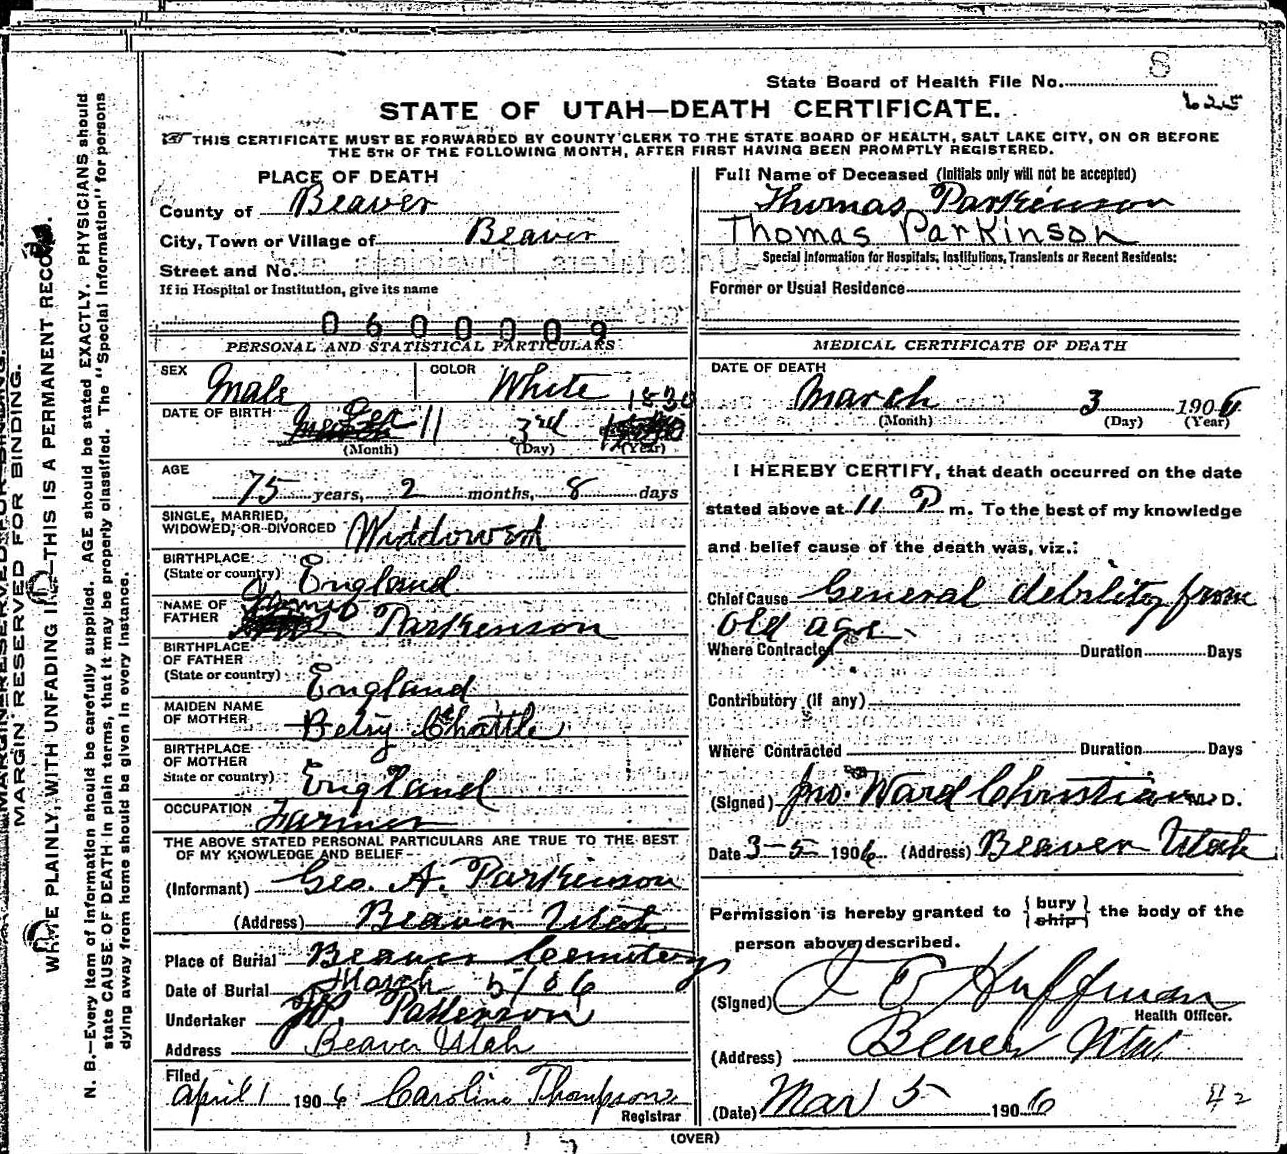 State Board of Health File No. 8
625
STATE OF UTAH—DEATH CERTIFICATE.
THIS CERTIFICATE MUST BE FORWARDED BY COUNTY CLERK TO THE STATE BOARD OF HEALTH, SALT LAKE CITY, ON OR BEFORE
THE 5TH OF THE FOLLOWING MONTH, AFTER FIRST HAVING BEEN PROMPTLY REGISTERED.
PLACE OF DEATH
County of Beaver
City, Town or Village of Beaver
Street and No.
If in Hospital or Institution, give its name
0600009
PERSONAL AND STATISTICAL PARTICULARS
SEX Male COLOR White
DATE OF BIRTH Dec 11 3rd 1830
(Month) (Day) (Year)
AGE 75 years, 2 months, 8 days
SINGLE, MARRIED,
WIDOWED, OR DIVORCED Widdowed
BIRTHPLACE
(State or country) England
NAME OF
FATHER James Parkenson
BIRTHPLACE
OF FATHER
(State or country) England
MAIDEN NAME
OF MOTHER Betsy Chattle
BIRTHPLACE
OF MOTHER
State or country) England
OCCUPATION Farmer
THE ABOVE STATED PERSONAL PARTICULARS ARE TRUE TO THE BEST
OF MY KNOWLEDGE AND BELIEF
(Informant) Geo. A. Parkinson
(Address) Beaver Utah
Place of Burial Beaver Cemetery
Date of Burial March 5/06
Undertaker Patterson
Address Beaver Utah
Filed
April 1 1906 Caroline Thompson
Registrar
Full Name of Deceased (Initials only will not be accepted)
Thomas Parkinson
Thomas Parkinson
Special Information for Hospitals, Institutions, Transients or Recent Residents:
Former or Usual Residence
MEDICAL CERTIFICATE OF DEATH
DATE OF DEATH
March 3 1906
(Month) (Day) (Year)
I HEREBY CERTIFY, that death occurred on the date
stated above at 11 P m. To the best of my knowledge
and belief cause of the death was, viz.:
Chief Cause General debility from
old age.
Where Contracted Duration Days
Contributory (if any)
Where Contracted Duration Days
(Signed) Jno. Ward Christian M. D.
Date 3-5- 1906 (Address) Beaver Utah
Permission is hereby granted to {bury
ship} the body of the
person above described.
(Signed) Huffman
Health Officer.
(Address) Beaver Utah
(Date) Mar 5 1906
42
(OVER)
MARGIN RESERVED FOR BINDING.
WRITE PLAINLY, WITH UNFADING INK—THIS IS A PERMANENT RECORD.
N. B.—Every item of information should be carefully supplied. AGE should be stated EXACTLY. PHYSICIANS should
state CAUSE OF DEATH in plain terms, that it may be properly classified. The "Special Information" for persons
dying away from home should be given in every instance.